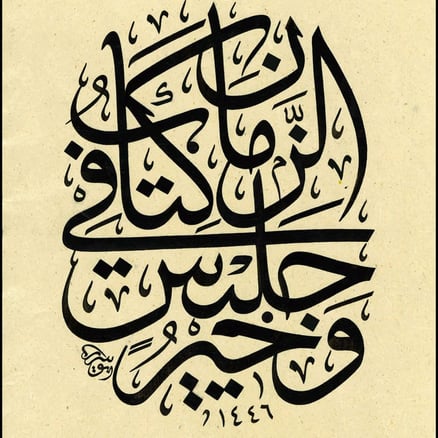 وخير
جليس
في الزمان كتاب
١٤٤٦